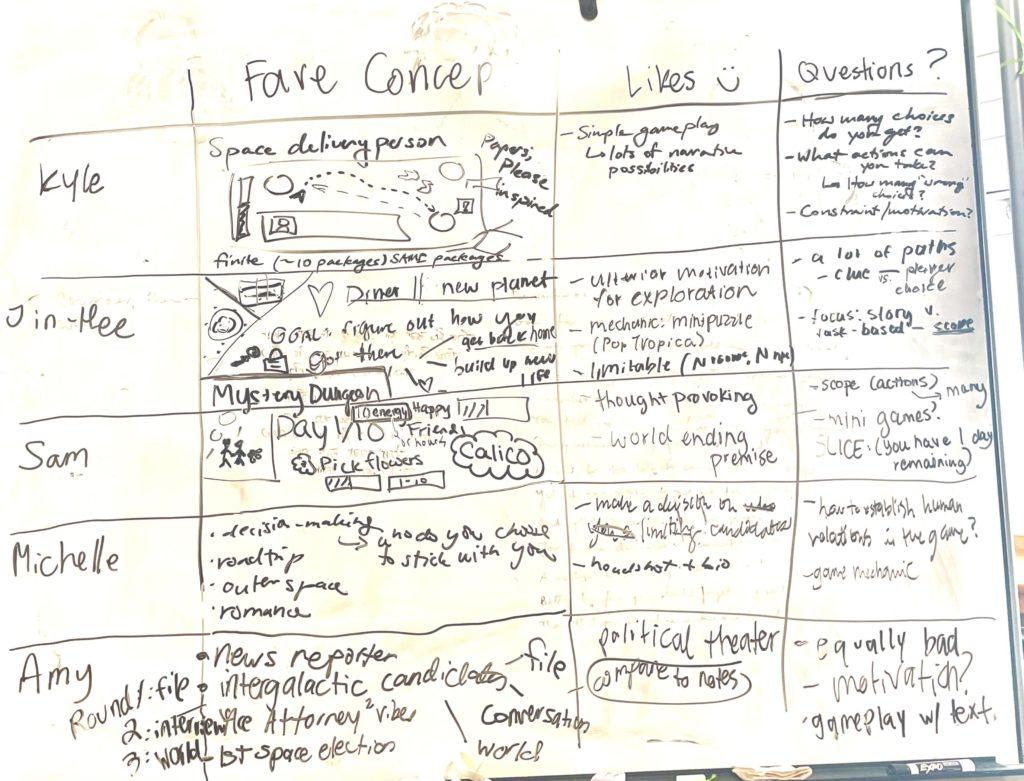 Fave Concep
Likes
Questions?
Kyle
Space delivery person
Papers,
Please
inspired
finite (~10 packages) SAME packages
- Simple gameplay
lots of narrative
possibilities
- How many choices
do you get?
- What actions can
you take?
How many "wrong"
choices?
- Constraint/motivation?
Jin-Hee
Diner || new planet
GOAL: figure out how you
got there
get back home
build up new
life
- ulterior motivation
for exploration
- mechanic: minipuzzle
(PopTropica)
- limitable (N rooms, N
- a lot of paths
- clue vs. player
choice
- focus: story v.
task-based - scope
Sam
Mystery Dungeon
Day 1/10
10 energy
Happy
Friends
or hours
Pick flowers
1-10
Calico
- thought provoking
- world ending
premise
- scope (actions)
many
- mini games?
SLICE: (you have 1 day
remaining)
Michelle
• decision-making
who do you choose
to stick with you
• roadtrip
• outer space
• romance
- make a decision on
limiting candidates
- headshot + bio
- how to establish human
relations in the game?
- game mechanic
Amy
• news reporter
• intergalactic candidates
Ace Attorney vibes
1st space election
Round 1: file
2: interview
3: world
file
conversation
world
political theater
compare to notes
• equally bad
- motivation?
• gameplay w/ text.
EXPO